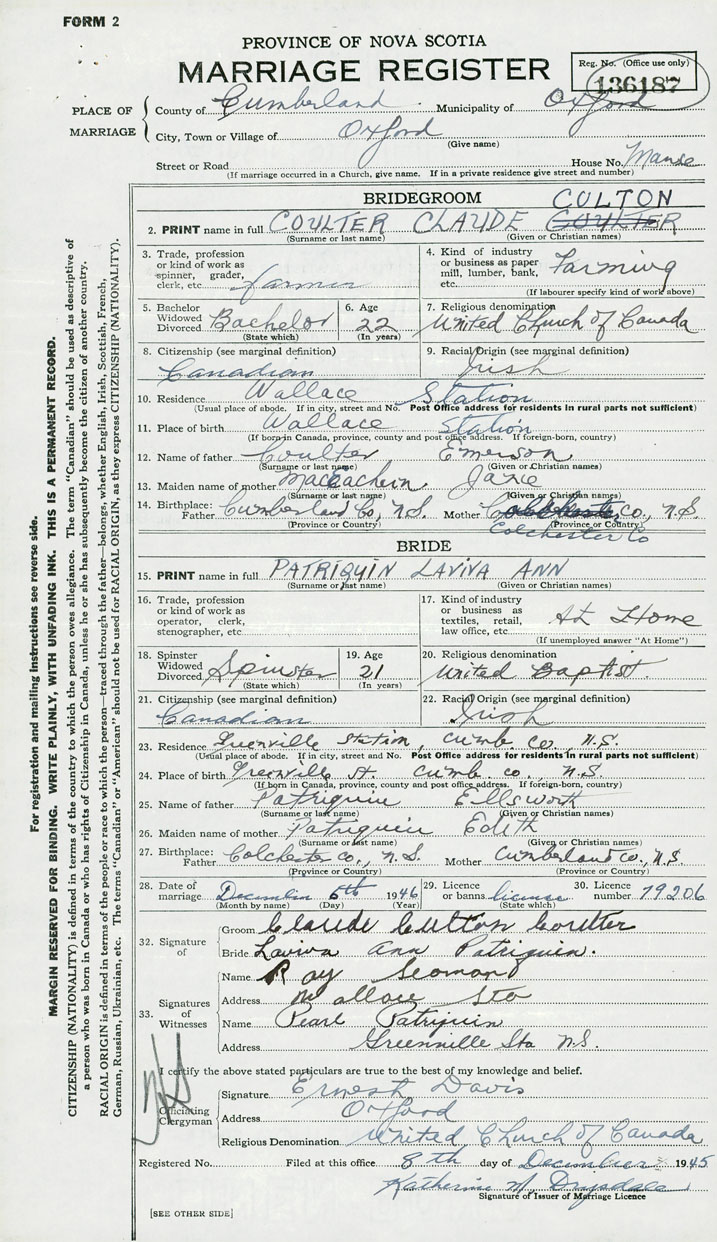 FORM 2
PROVINCE OF NOVA SCOTIA
MARRIAGE REGISTER
Reg. No. (Office use only)
136187
PLACE OF MARRIAGE
County of Cumberland Municipality of Oxford
City, Town or Village of Oxford
(Give name)
Street or Road House No. Manse
(If marriage occurred in a Church, give name. If in a private residence give street and number)
BRIDEGROOM CULTON
2. PRINT name in full COULTER CLAUDE COULTER
(Surname or last name) (Given or Christian names)
3. Trade, profession or kind of work as spinner, grader, clerk, etc. farmer
4. Kind of industry or business as paper mill, lumber, bank, etc. Farming
(If labourer specify kind of work above)
5. Bachelor Widowed Divorced Bachelor (State which)
6. Age 22 (In years)
7. Religious denomination United Church of Canada
8. Citizenship (see marginal definition) Canadian
9. Racial Origin (see marginal definition) Irish
10. Residence Wallace Station
(Usual place of abode. If in city, street and No. Post Office address for residents in rural parts not sufficient)
11. Place of birth Wallace Station
(If born in Canada, province, county and post office address. If foreign-born, country)
12. Name of father Coulter Emerson
(Surname or last name) (Given or Christian names)
13. Maiden name of mother MacEachern Janie
(Surname or last name) (Given or Christian names)
14. Birthplace: Father Cumberland Co., N.S. Mother Co., N.S.
(Province or Country) (Province or Country)
Colchester Co
BRIDE
15. PRINT name in full PATRIQUIN LAVIVA ANN
(Surname or last name) (Given or Christian names)
16. Trade, profession or kind of work as operator, clerk, stenographer, etc.
17. Kind of industry or business as textiles, retail, law office, etc. At Home
(If unemployed answer "At Home")
18. Spinster Widowed Divorced Spinster (State which)
19. Age 21 (In years)
20. Religious denomination United Baptist.
21. Citizenship (see marginal definition) Canadian
22. Racial Origin (see marginal definition) Irish
23. Residence Greenville Station, Cumb. Co. N.S.
(Usual place of abode. If in city, street and No. Post Office address for residents in rural parts not sufficient)
24. Place of birth Greenville St. Cumb. Co. N.S.
(If born in Canada, province, county and post office address. If foreign-born, country)
25. Name of father Patriquin Ellsworth
(Surname or last name) (Given or Christian names)
26. Maiden name of mother Patriquin Edith
(Surname or last name) (Given or Christian names)
27. Birthplace: Father Colchester Co., N.S. Mother Cumberland Co., N.S.
(Province or Country) (Province or Country)
28. Date of marriage December 6th 1946
(Month by name) (Day) (Year)
29. Licence or banns license (State which)
30. Licence number 79206
32. Signature of
Groom Claude Culton Coulter
Bride Laviva Ann Patriquin.
33. Signatures of Witnesses
Name Ray Seaman
Address Wallace Sta
Name Pearl Patriquin
Address Greenville Sta N.S.
I certify the above stated particulars are true to the best of my knowledge and belief.
Officiating Clergyman
Signature Ernest Davis
Address Oxford
Religious Denomination United Church of Canada
Registered No. Filed at this office 8th day of December 1945
Katherine M. Drysdale
Signature of Issuer of Marriage Licence
[SEE OTHER SIDE]
For registration and mailing instructions see reverse side.
MARGIN RESERVED FOR BINDING. WRITE PLAINLY, WITH UNFADING INK. THIS IS A PERMANENT RECORD.
CITIZENSHIP (NATIONALITY) is defined in terms of the country to which the person owes allegiance. The term "Canadian" should be used as descriptive of
a person who was born in Canada or who has rights of Citizenship in Canada, unless he or she has subsequently become the citizen of another country.
RACIAL ORIGIN is defined in terms of the people or race to which the person—traced through the father—belongs, whether English, Irish, Scottish, French,
German, Russian, Ukrainian, etc. The terms "Canadian" or "American" should not be used for RACIAL ORIGIN, as they express CITIZENSHIP (NATIONALITY).